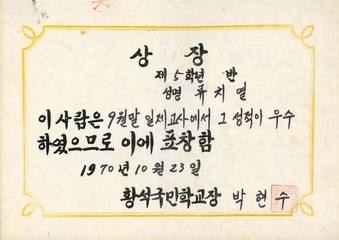 상 장
제 5학년 반
성명 류치열
이 사람은 9월말 일제고사에서 그 성적이 우수
하였으므로 이에 표창함
1970년 10월 23일
황석국민학교장 박현수